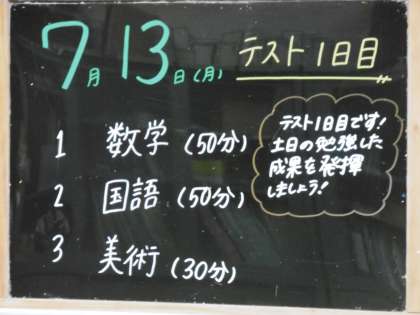 7月13日(月) テスト1日目
1 数学(50分)
2 国語(50分)
3 美術(30分)
テスト1日目です!
土日の勉強した
成果を発揮
しましょう!